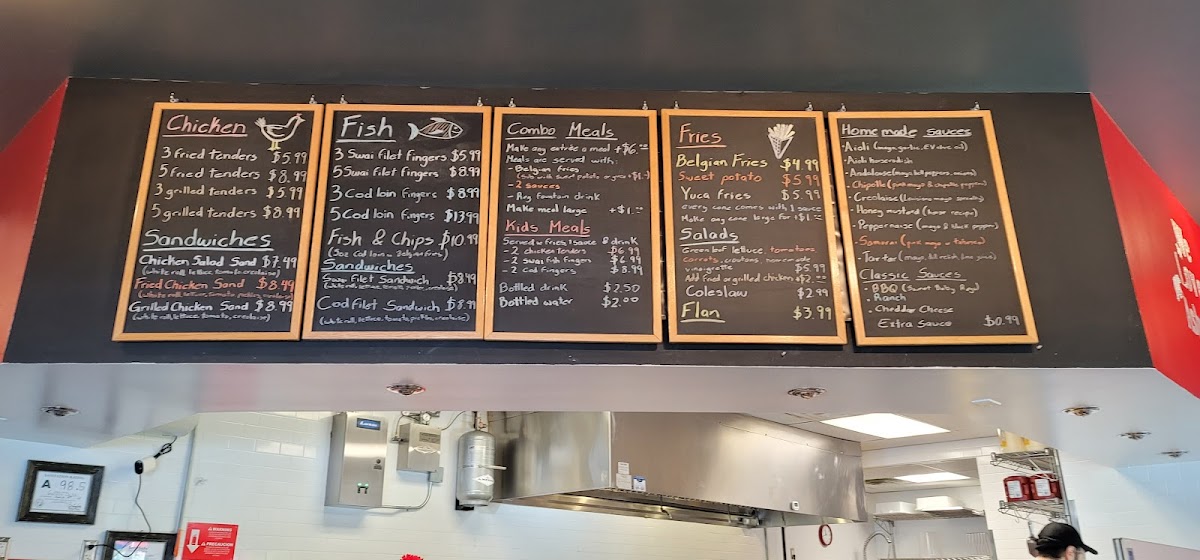 Chicken
3 fried tenders $5.99
5 fried tenders $8.99
3 grilled tenders $5.99
5 grilled tenders $8.99
Sandwiches
Chicken Salad Sand $7.49
(white roll, lettuce, tomato, creolaise)
Fried Chicken Sand $8.49
Grilled Chicken Sand $8.99
(white roll, lettuce, tomato, creolaise)
Fish
3 Swai filet fingers $5.99
5 Swai filet fingers $8.99
3 Cod loin fingers $8.99
5 Cod loin fingers $13.99
Fish & Chips $10.99
(3oz Cod loin w Belgian fries)
Sandwiches
Swai Filet Sandwich $8.49
Cod Filet Sandwich $8.99
(white roll, lettuce, tomato, pickles, creolaise)
Combo Meals
Make any entrée a meal +$6.00
Meals are served with:
- Belgian fries
- 2 sauces
- Any fountain drink
Make meal large +$1.00
Kids Meals
Served w fries, 1 sauce & drink
- 2 chicken tenders $6.99
- 2 swai fish fingers $6.99
- 2 cod fingers $8.99
Bottled drink $2.50
Bottled water $2.00
Fries
Belgian Fries $4.99
Sweet potato $5.99
Yuca fries $5.99
every cone comes with 1 sauce
Make any cone large for +$1.00
Salads
Green leaf lettuce tomatoes
carrots, croutons, homemade
vinaigrette $5.99
Add fried or grilled chicken +$2.00
Coleslaw $2.99
Flan $3.99
Homemade sauces
- Aioli (mayo, garlic, EV olive oil)
- Aioli horseradish
- Andalouse (mayo, bell peppers, onions)
- Chipotle (pink mayo & chipotle peppers)
- Creolaise (Louisiana mayo specialty)
- Honey mustard (house recipe)
- Peppernaise (mayo & black pepper)
- Samurai (pink mayo w Tabasco)
- Tartar
Classic Sauces
- BBQ (Sweet Baby Rays)
- Ranch
- Cheddar Cheese
Extra Sauce $0.99
A 98.5
WARNING
PRECAUCION